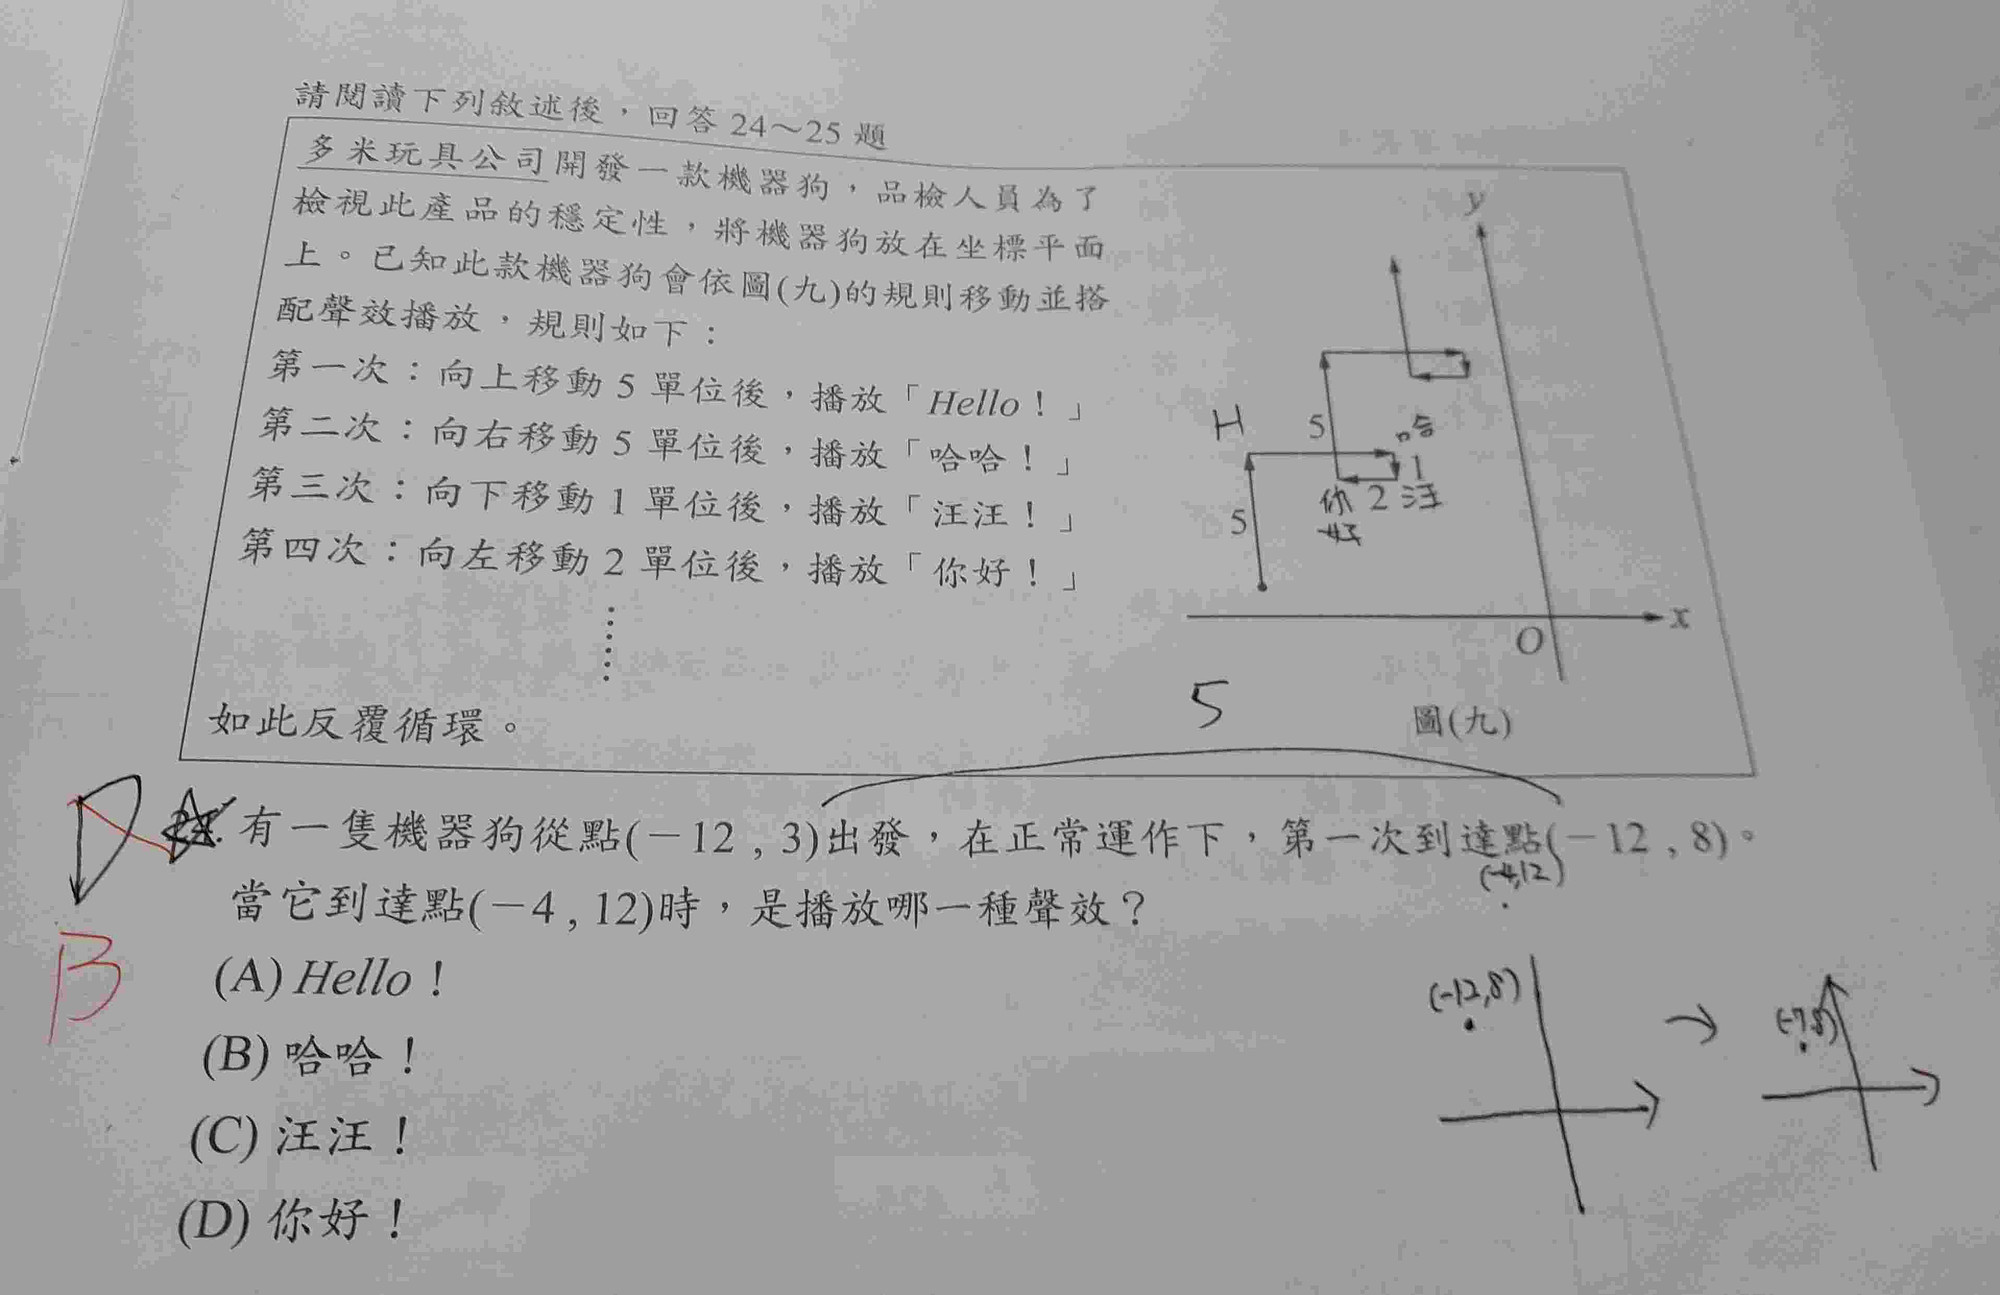 請閱讀下列敘述後，回答 24～25 題
多米玩具公司開發一款機器狗，品檢人員為了
檢視此產品的穩定性，將機器狗放在坐標平面
上。已知此款機器狗會依圖(九)的規則移動並搭
配聲效播放，規則如下：
第一次：向上移動 5 單位後，播放「Hello！」
第二次：向右移動 5 單位後，播放「哈哈！」
第三次：向下移動 1 單位後，播放「汪汪！」
第四次：向左移動 2 單位後，播放「你好！」
⋮
如此反覆循環。
y
H
5
哈
1
你好
2
汪
5
x
O
圖(九)
5
有一隻機器狗從點(－12 , 3)出發，在正常運作下，第一次到達點(－12 , 8)。
(-4,12)
當它到達點(－4 , 12)時，是播放哪一種聲效？
D
B
(A) Hello！
(B) 哈哈！
(C) 汪汪！
(D) 你好！
(-12,8)
(-7,8)